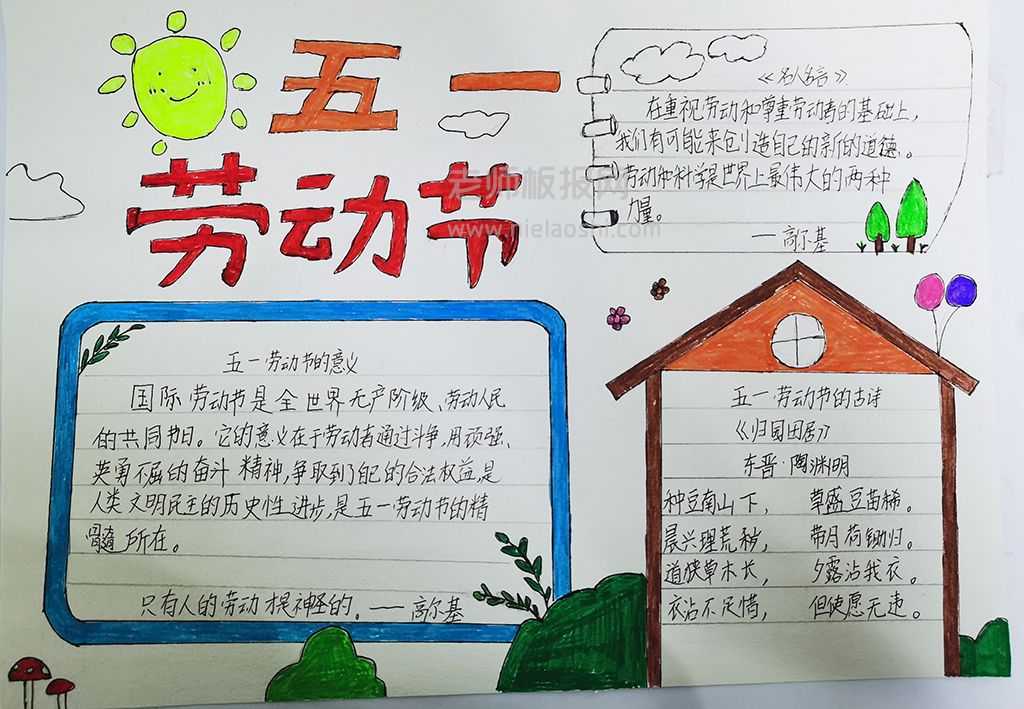 五一
劳动节
老师板报网
《名人名言》
在重视劳动和尊重劳动者的基础上,
我们有可能来创造自己的新的道德。
劳动和科学是世界上最伟大的两种
力量。
——高尔基
五一劳动节的意义
国际劳动节是全世界无产阶级、劳动人民
的共同节日。它的意义在于劳动者通过斗争,用顽强、
英勇不屈的奋斗精神,争取到了自己的合法权益,是
人类文明民主的历史性进步,是五一劳动节的精
髓所在。
只有人的劳动才是神圣的。——高尔基
五一劳动节的古诗
《归园田居》
东晋·陶渊明
种豆南山下, 草盛豆苗稀。
晨兴理荒秽, 带月荷锄归。
道狭草木长, 夕露沾我衣。
衣沾不足惜, 但使愿无违。